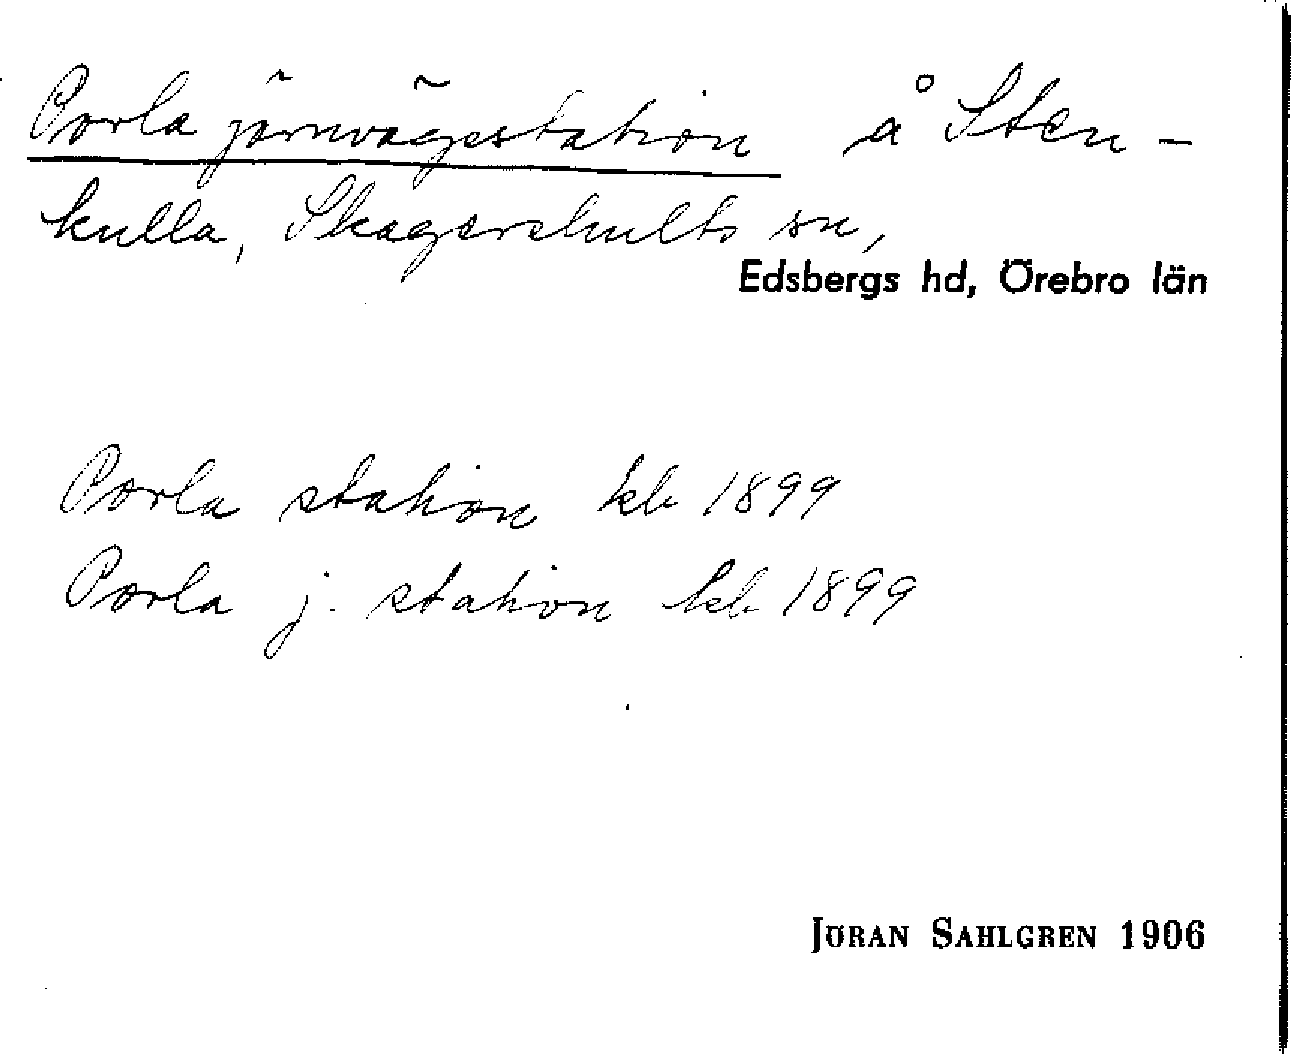 Porla järnvägsstation å Sten-
kulla, Skagershults sn,
Edsbergs hd, Örebro län
Porla station kb 1899
Porla j. station kb 1899
JÖRAN SAHLGREN 1906